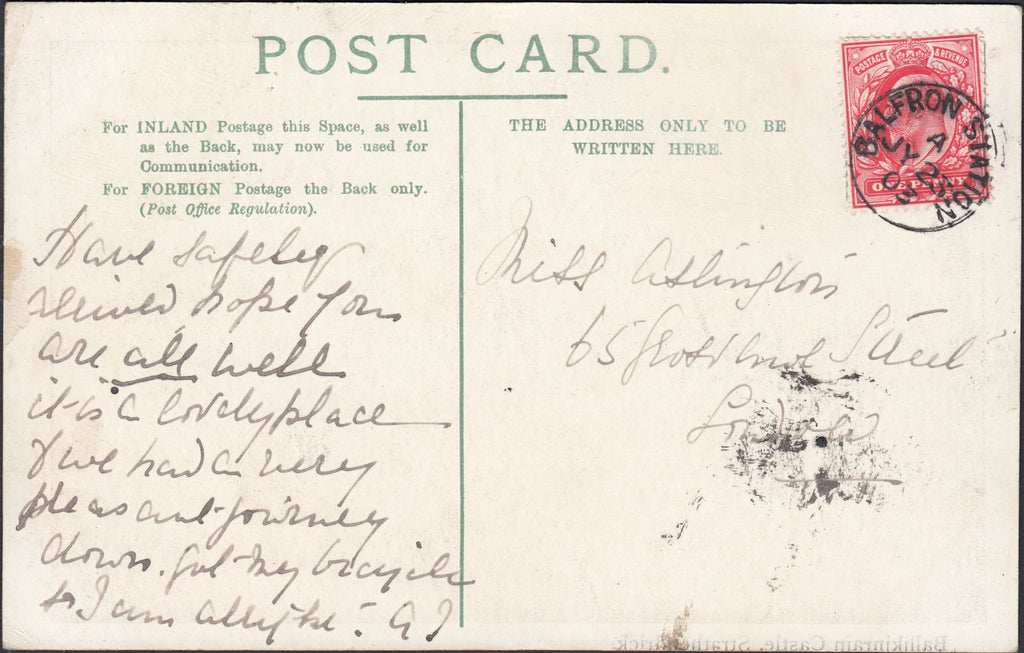 POST CARD.
For INLAND Postage this Space, as well
as the Back, may now be used for
Communication.
For FOREIGN Postage the Back only.
(Post Office Regulation).
THE ADDRESS ONLY TO BE
WRITTEN HERE.
POSTAGE & REVENUE
ONE PENNY
BALFRON STATION
A
JY 23
03
Have safely
arrived hope you
are all well
it is a lovely place
& we had a very
pleasant journey
down. Got my bicycle
& I am allright.
Miss
65 Grosvenor Street
London
Ballikinrain Castle. Strathendrick